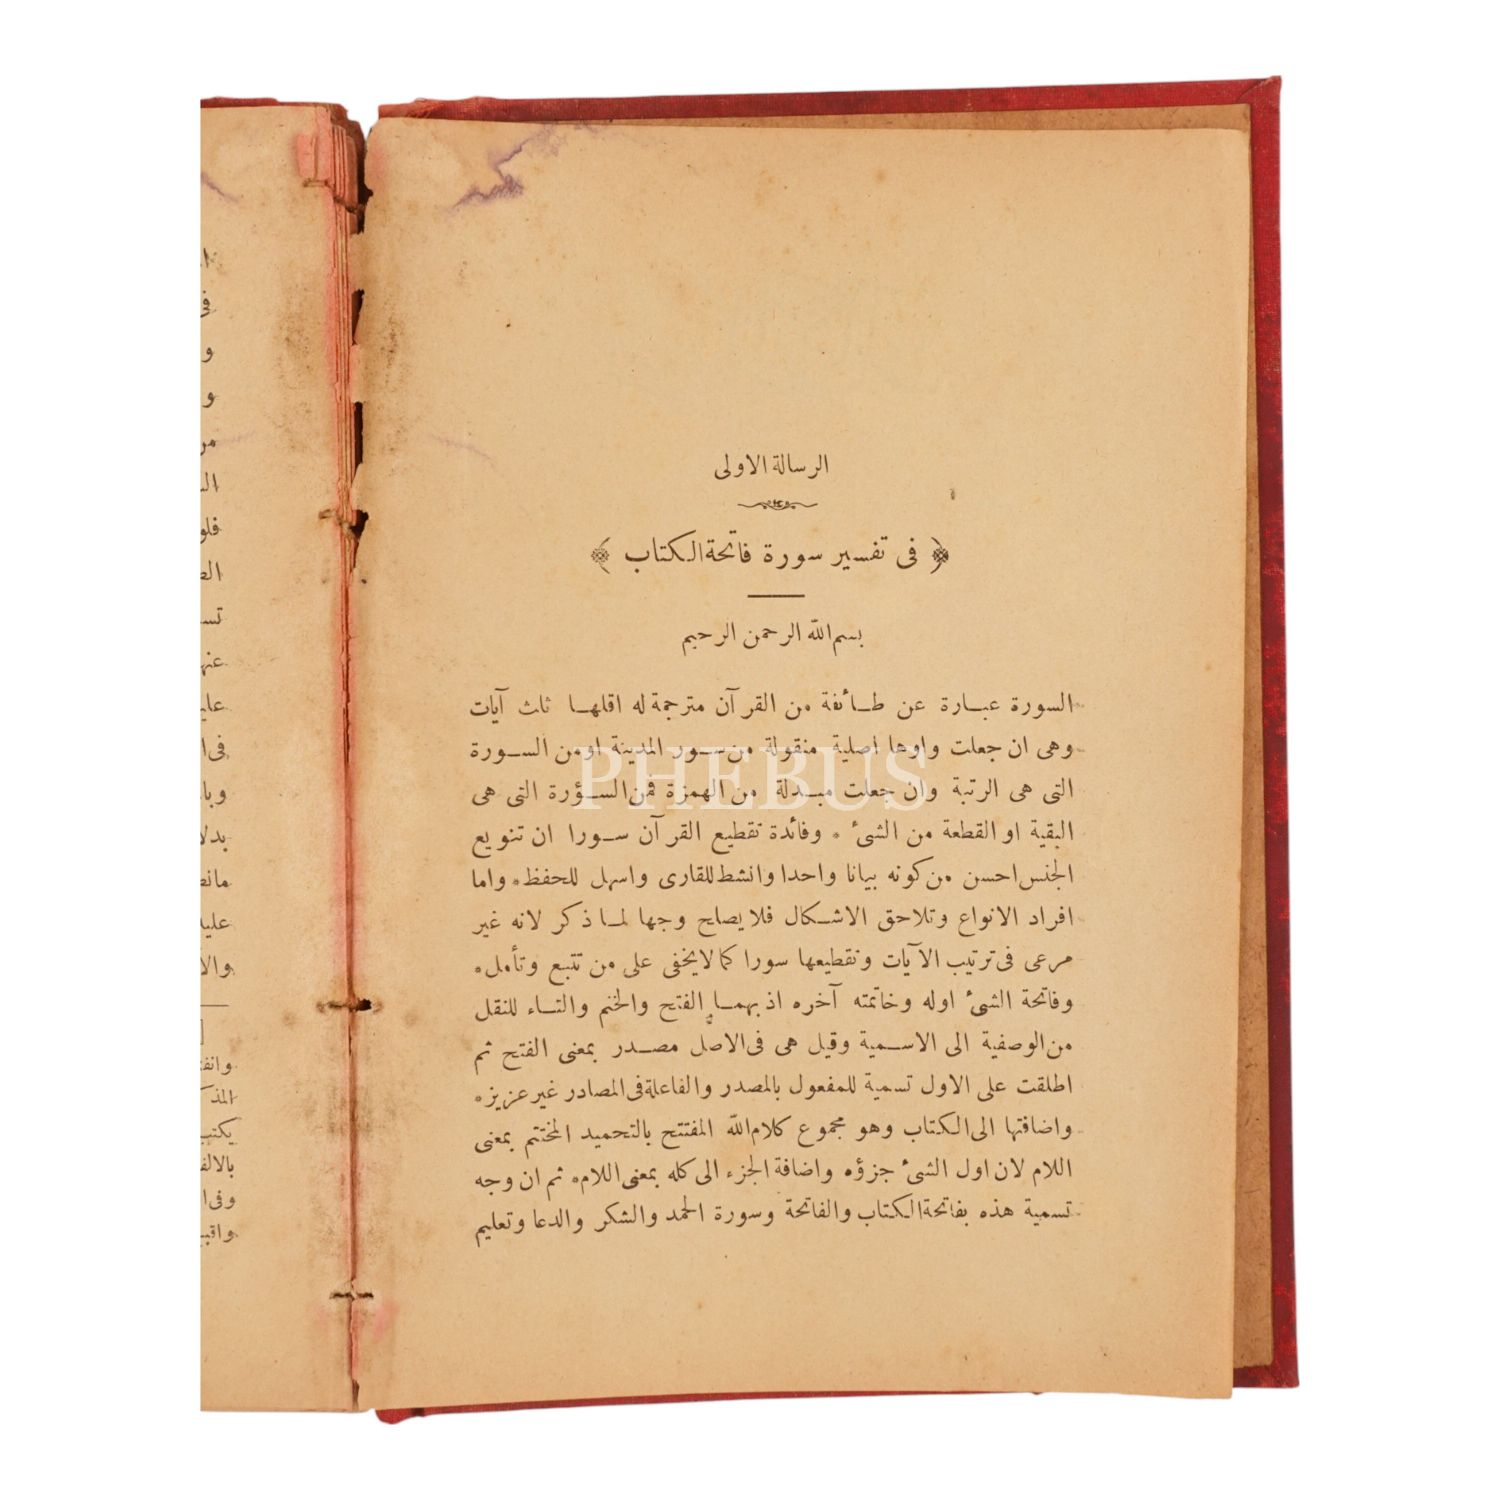 الرسالة الاولى
﴿ فى تفسير سورة فاتحة الكتاب ﴾
بسم الله الرحمن الرحيم
السورة عبارة عن طائفة من القرآن مترجمة له اقلها ثلث آيات
وهى ان جعلت واوها اصلية منقولة من سور المدينة او من السورة
التى هى الرتبة وان جعلت مبدلة من الهمزة فمن السؤرة التى هى
البقية او القطعة من الشئ * وفائدة تقطيع القرآن سورا ان تنويع
الجنس احسن من كونه بيانا واحدا وانشط للقارى واسهل للحفظ * واما
افراد الانواع وتلاحق الاشكال فلا يصلح وجها لما ذكر لانه غير
مرعى فى ترتيب الآيات وتقطيعها سورا كما لا يخفى على من تتبع وتأمل *
وفاتحة الشئ اوله وخاتمته آخره اذ بهما الفتح والختم والتاء للنقل
من الوصفية الى الاسمية وقيل هى فى الاصل مصدر بمعنى الفتح ثم
اطلقت على الاول تسمية للمفعول بالمصدر والفاعلة فى المصادر غير عزيز *
واضافتها الى الكتاب وهو مجموع كلام الله المفتتح بالتحميد المختتم بمعنى
اللام لان اول الشئ جزؤه واضافة الجزء الى كله بمعنى اللام * ثم ان وجه
تسمية هذه بفاتحة الكتاب والفاتحة وسورة الحمد والشكر والدعا وتعليم
PHEBUS
فى
و
و
من
عليه
يكتب